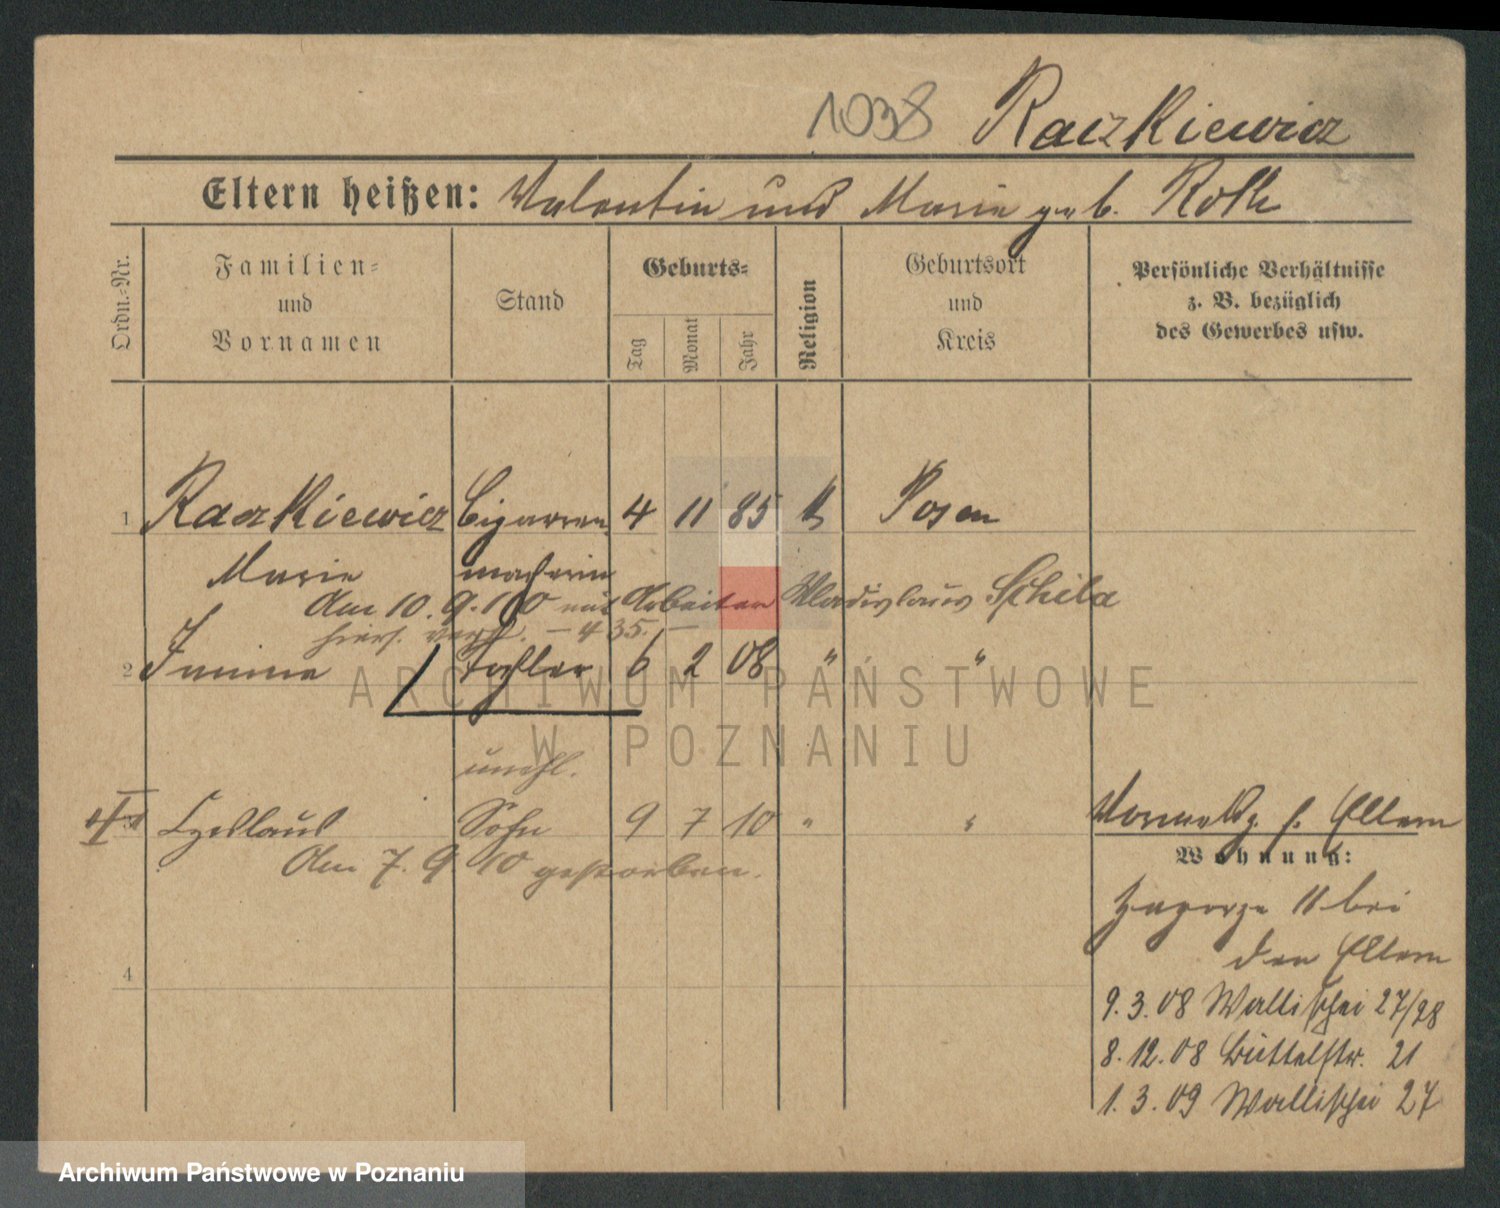 1038 Raczkiewicz
Eltern heißen: Valentin und Marie geb. Roth
Ordn.-Nr.
Familien-
und
Vornamen
Stand
Geburts-
Tag
Monat
Jahr
Religion
Geburtsort
und
Kreis
Persönliche Verhältnisse
z. B. bezüglich
des Gewerbes usw.
1 Raczkiewicz Cigarren 4 11 85 k Posen
Marie macherin
Am 10. 9. 10 mit Arbeiter Wladislaus Schila
hiers. verh. — 435. —
2 Janina Tochter 6 2 08 " "
ARCHIWUM PAŃSTWOWE
W POZNANIU
unehl.
3 Czeslaus Sohn 9 7 10 " "
Am 7. 9 10 gestorben.
4
Vormdg. s. Eltern
Wohnung:
Zagorze 11 bei
den Eltern
9. 3. 08 Wallischei 27/28
8. 12. 08 Büttelstr. 21
1. 3. 09 Wallischei 27
Archiwum Państwowe w Poznaniu